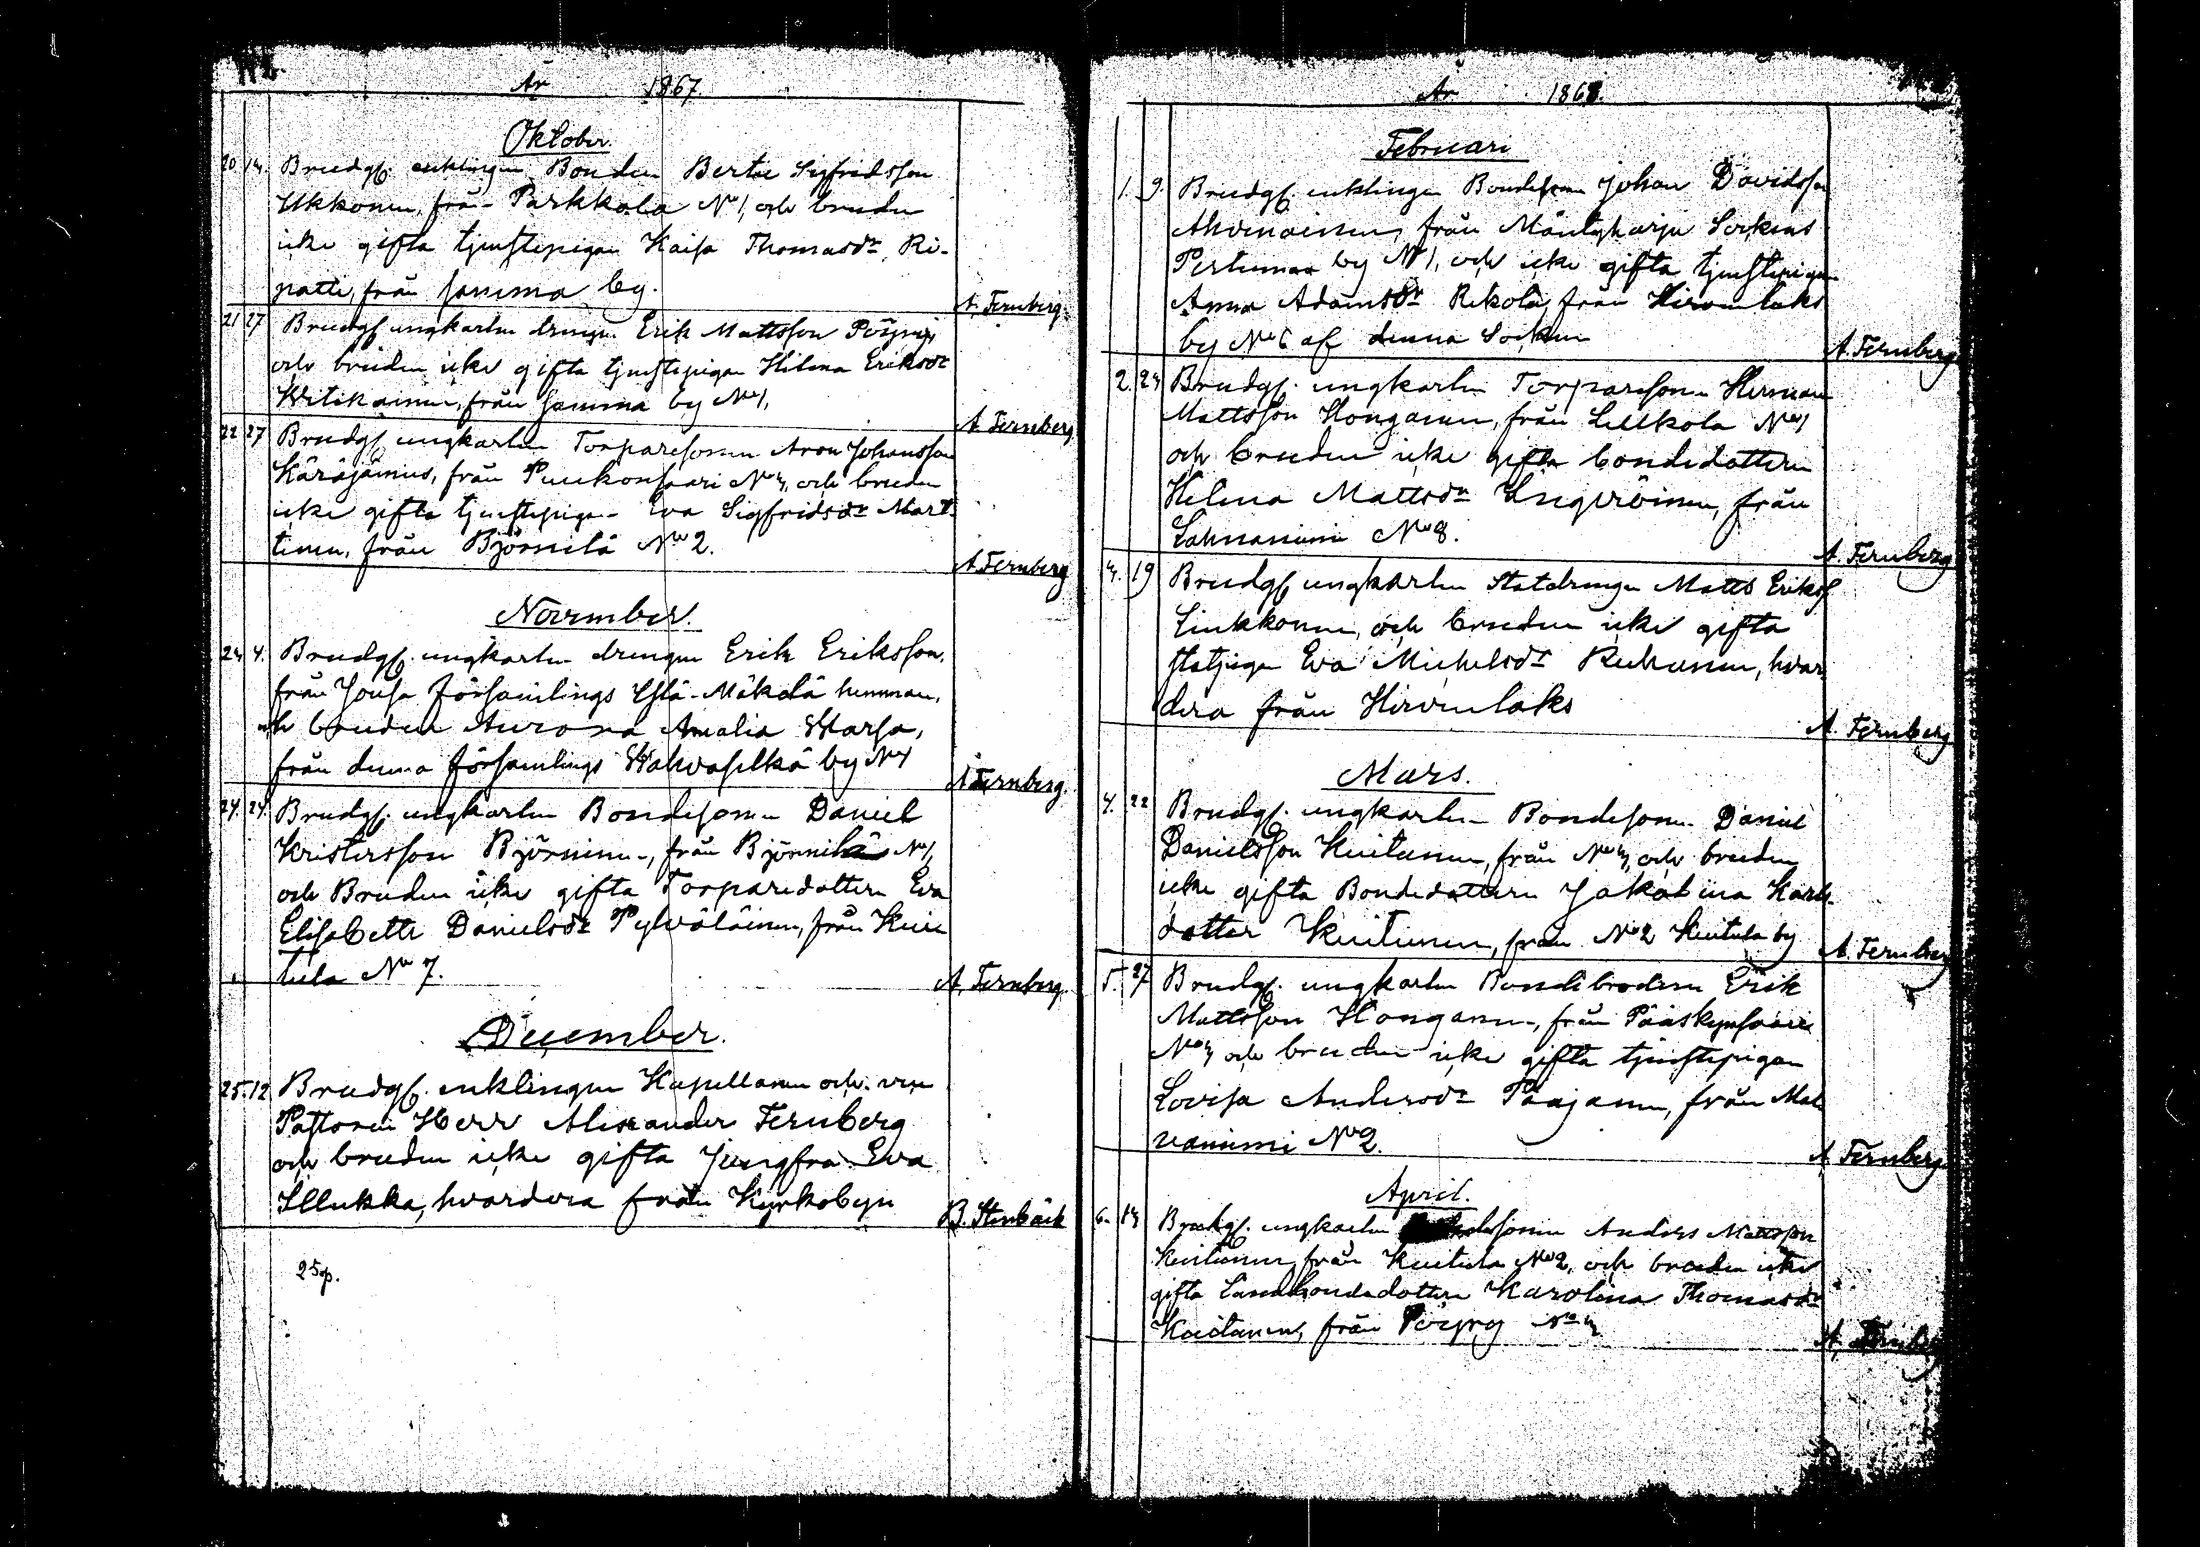 År 1867.
Oktober.
20 14. Brudg. enklingen Bonden Bertil Sigfridsson
Ukkonen, från Parkkola No 1, och bruden
icke gifta tjenstepigan Kaisa Thomasdr Ri-
patti, från samma by.
A. Fernberg.
21 27 Brudg. ungkarlen drengen Erik Mattsson Pöyry,
och bruden icke gifta tjenstepigan Helena Eriksdr
från samma by No 1,
A. Fernberg
22 27 Brudg. ungkarlen Torparesonen Aron Johansson
Käräjämus, från No 4, och bruden
icke gifta tjenstepigan Eva Sigfridsdr Mart-
tinen, från Björnilä No 2.
A. Fernberg
November.
4. Brudg. ungkarlen drengen Erik Eriksson,
från Jousa församlings Ylä-Mäkelä hemman,
och bruden Aurora Amalia Harja,
från denna församlings by No 1
A. Fernberg.
24. 24. Brudg. ungkarlen Bondesonen Daniel
Kristersson Björninen, från Björnilä No 1,
och Bruden icke gifta Torparedottern Eva
Elisabeth Danielsdr Pylväläinen, från Kui-
tula No 7.
A. Fernberg.
December.
25. 12 Brudg. enklingen Kapellanen och vice
Pastoren Herr Alexander Fernberg
och bruden icke gifta Jungfru Eva
Illukka, hvardera från Kyrkobyn
B. Stenbäck
25 p.
År 1868.
Februari
1. 9. Brudg. enklingen Bondesonen Johan Davidsson
Ahvenainen, från Mäntyharju Sockens
Pertunmaa by No 1, och icke gifta tjenstepigan
Anna Adamsdr Rekola, från Hirvenlaks
by No 6 af denna Socken
A. Fernberg
2. 24 Brudg. ungkarlen Torparesonen Herman
Mattsson Honganen, från Lellkola No 1
och bruden icke gifta bondedottern
Helena Mattsdr Ingeröinen, från
Lahnaniemi No 8.
A. Fernberg
19 Brudg. ungkarlen Statdrengen Matts Eriks.
Linkkonen, och bruden icke gifta
statpigan Eva Michelsdr hvar
dera från Hirvenlaks
A. Fernberg
Mars.
4. 22 Brudg. ungkarlen Bondesonen Daniel
Danielsson Kuitunen, från No 4, och bruden
icke gifta Bondedottern Jakobina Karls-
dotter Kuitunen, från No 2 Kuitula by
A. Fernberg
5. 27 Brudg. ungkarlen Bondebrodern Erik
Mattsson Honganen, från Pääskynsaari
No 4 och bruden icke gifta tjenstepigan
Lovisa Andersdr Paajanen, från
No 2.
A. Fernberg
April.
6. 14 Brudg. ungkarlen Anders Mattsson
Kuitunen, från Kuitula No 2, och bruden icke
gifta Landbondedottern Karolina Thomasdr
Kuitunen, från Pöyry No 4
A. Fernberg